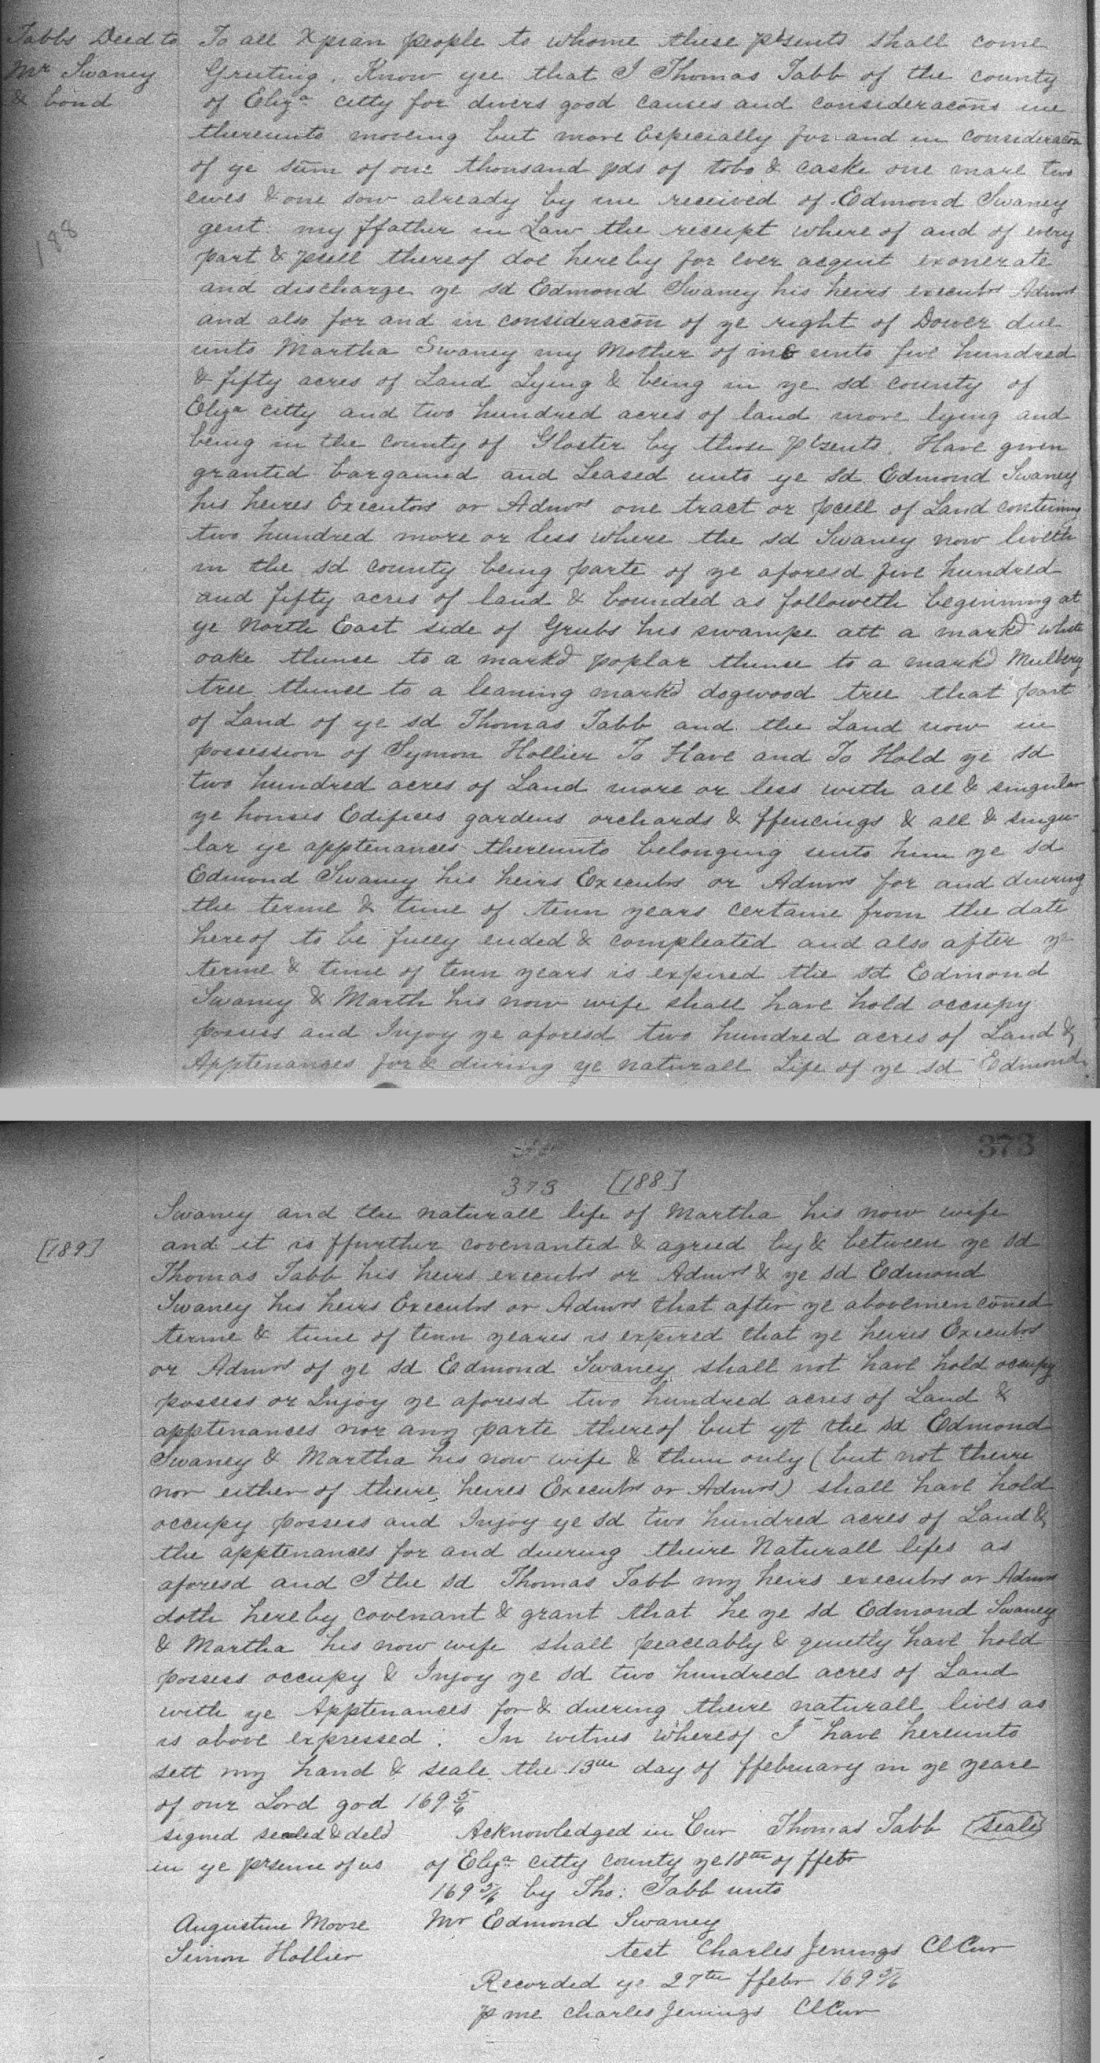 Tabbs Deed to
Mr Swaney
& bond
188
To all Xpian people to whome these pssents shall come
Greeting. Know yee that I Thomas Tabb of the county
of Eliza citty for divers good causes and consideracons me
thereunto moveing but more Especially for and in consideracon
of ye sum of one thousand pds of tobo & caske one mare two
ewes & one sow already by me received of Edmond Swaney
gent: my ffather in Law the receipt where of and of every
part & pcell thereof doe hereby for ever acquit exonerate
and discharge ye sd Edmond Swaney his heirs executrs Admrs
and also for and in consideracon of ye right of Dower due
unto Martha Swaney my Mother of in & unto five hundred
& fifty acres of Land Lying & being in ye sd county of
Eliza citty and two hundred acres of land more lying and
being in the county of Gloster by these pssents. Have given
granted bargained and Leased unto ye sd Edmond Swaney
his heires Executors or Admrs one tract or pcell of Land containing
two hundred more or less where the sd Swaney now liveth
in the sd county being parte of ye aforesd five hundred
and fifty acres of land & bounded as followeth beginning at
ye North East side of Grubs his swampe att a markd white
oake thense to a markd poplar thense to a markd Mulbery
tree thense to a leaning markd dogwood tree that part
of Land of ye sd Thomas Tabb and the Land now in
possession of Symon Hollier To Have and To Hold ye sd
two hundred acres of Land more or less with all & singular
ye houses Edifices gardens orchards & ffencings & all & singu-
lar ye apptenances thereunto belonging unto him ye sd
Edmond Swaney his heirs Executrs or Admrs for and dureing
the terme & time of tenn years certaine from the date
hereof to be fully ended & compleated and also after ye
terme & time of tenn years is expired the sd Edmond
Swaney & Marth his now wife shall have hold occupy
possess and Injoy ye aforesd two hundred acres of Land &
Apptenances for & during ye naturall Life of ye sd Edmond
373
373 [188]
[189]
Swaney and the naturall life of Martha his now wife
and it is ffurther covenanted & agreed by & between ye sd
Thomas Tabb his heirs executrs or Admrs & ye sd Edmond
Swaney his heirs Executrs or Admrs that after ye abovemenconed
terme & time of tenn yeares is expired that ye heires Executrs
or Admrs of ye sd Edmond Swaney shall not have hold occupy
possess or Injoy ye aforesd two hundred acres of Land &
apptenances nor any parte thereof but yt the sd Edmond
Swaney & Martha his now wife & them only (but not theire
nor either of theire heires Executrs or Admrs) shall have hold
occupy possess and Injoy ye sd two hundred acres of Land &
the apptenances for and duering theire Naturall lifes as
aforesd and I the sd Thomas Tabb my heirs executrs or Admrs
doth hereby covenant & grant that he ye sd Edmond Swaney
& Martha his now wife shall peaceably & quietly have hold
possess occupy & Injoy ye sd two hundred acres of Land
with ye Apptenances for & dureing theire naturall lives as
is above expressed: In witnes whereof I have hereunto
sett my hand & seale the 13th day of ffebruary in ye yeare
of our Lord god 169 5/6
signed sealed & deld Acknowledged in Cur Thomas Tabb (Seale)
in ye prsense of us of Eliza citty county ye 18th of ffebr
169 5/6 by Tho: Tabb unto
Augustine Moore Mr Edmond Swaney
Simon Hollier test Charles Jenings Cl Cur
Recorded ye 27th ffebr 169 5/6
p me Charles Jenings Cl Cur